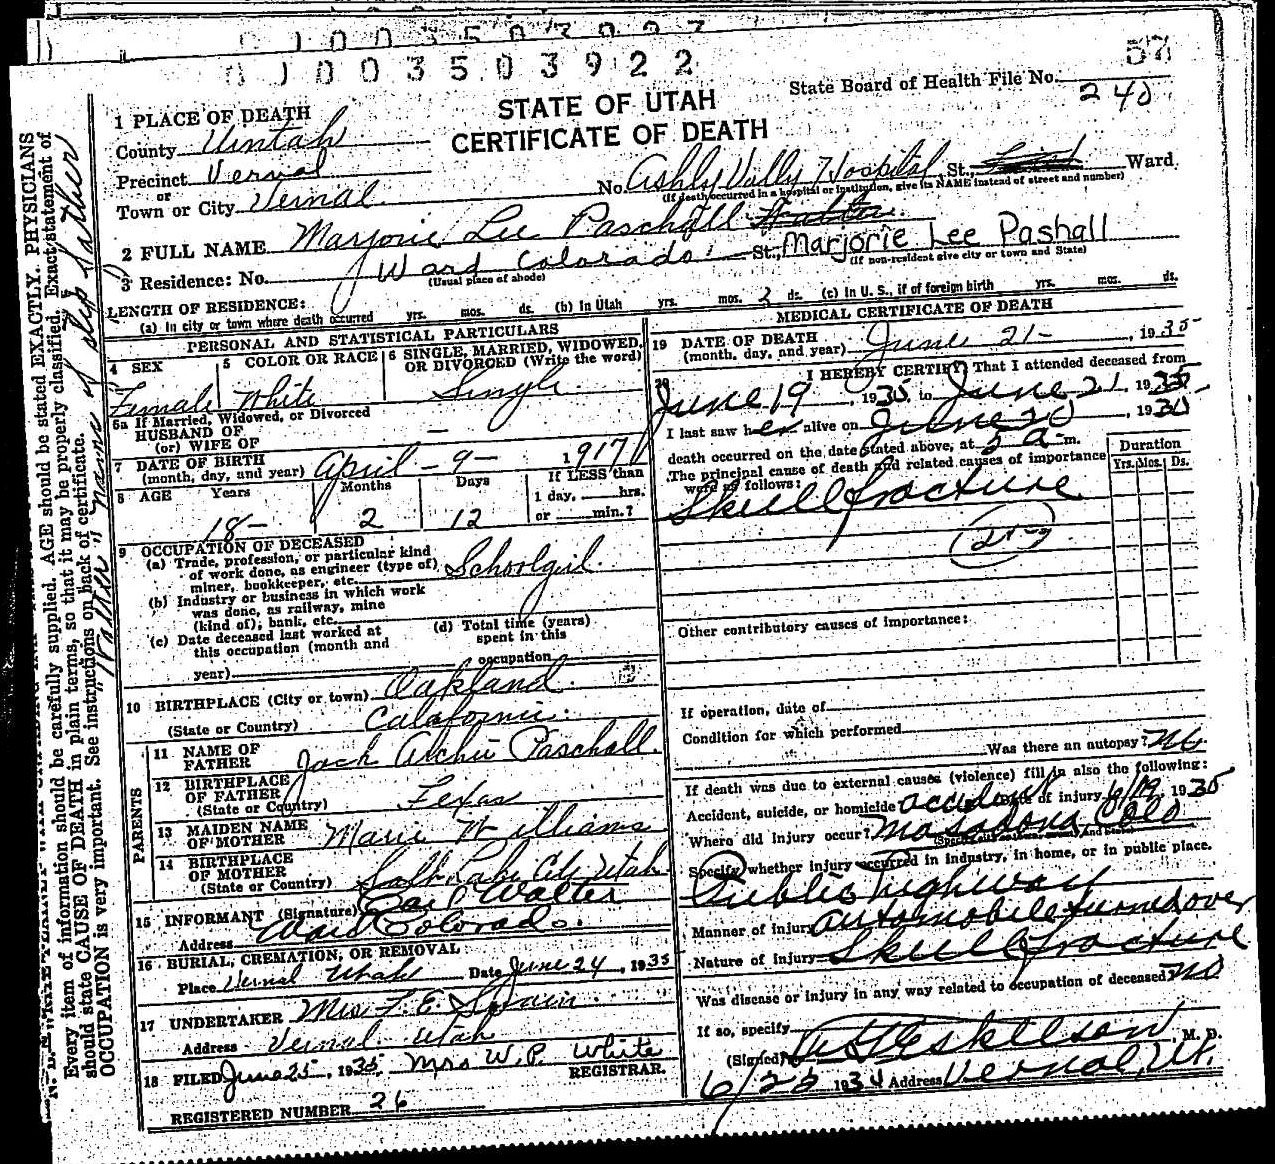 0 1 0 0 3 5 0 3 9 2 2
57
State Board of Health File No. 240
STATE OF UTAH
CERTIFICATE OF DEATH
1 PLACE OF DEATH
County Uintah
Precinct Vernal
or
Town or City Vernal
No. Ashly Vally Hospital, St., Ward
(If death occurred in a hospital or institution, give its NAME instead of street and number)
2 FULL NAME Marjorie Lee Paschall
3 Residence: No. Ward Colorado St., Marjorie Lee Pashall
(Usual place of abode) (If non-resident give city or town and State)
LENGTH OF RESIDENCE:
(a) In city or town where death occurred yrs. mos. ds. (b) In Utah yrs. mos. 3 ds. (c) In U. S., if of foreign birth yrs. mos. ds.
PERSONAL AND STATISTICAL PARTICULARS
4 SEX Female
5 COLOR OR RACE White
6 SINGLE, MARRIED, WIDOWED, OR DIVORCED (Write the word) Single
6a If Married, Widowed, or Divorced
HUSBAND OF
(or) WIFE OF -
7 DATE OF BIRTH
(month, day, and year) April - 9 - 1917
8 AGE Years 18 Months 2 Days 12 If LESS than
1 day, hrs.
or min.?
9 OCCUPATION OF DECEASED
(a) Trade, profession, or particular kind
of work done, as engineer (type of)
miner, bookkeeper, etc. Schoolgirl
(b) Industry or business in which work
was done, as railway, mine
(kind of), bank, etc.
(c) Date deceased last worked at
this occupation (month and
year)
(d) Total time (years)
spent in this
occupation
10 BIRTHPLACE (City or town) Oakland
(State or Country) California
PARENTS
11 NAME OF
FATHER Jack Archie Paschall
12 BIRTHPLACE
OF FATHER
(State or Country) Texas
13 MAIDEN NAME
OF MOTHER Marie Williams
14 BIRTHPLACE
OF MOTHER
(State or Country) Salt Lake City Utah
15 INFORMANT (Signature) Walter
Address Ward Colorado.
16 BURIAL, CREMATION, OR REMOVAL
Place Vernal Utah Date June 24, 1935
17 UNDERTAKER Mrs F. E.
Address Vernal Utah
18 FILED June 25, 1935. Mrs W. P. White
REGISTRAR.
REGISTERED NUMBER 26
MEDICAL CERTIFICATE OF DEATH
19 DATE OF DEATH
(month, day, and year) June 21 -, 1935
20 I HEREBY CERTIFY, That I attended deceased from
June 19, 1935, to June 21, 1935
I last saw her alive on June 20, 19
death occurred on the date stated above, at 3 a m.
The principal cause of death and related causes of importance
were as follows:
Duration
Yrs. Mos. Ds.
Skull fracture
Other contributory causes of importance:
If operation, date of
Condition for which performed
Was there an autopsy? No
If death was due to external causes (violence) fill in also the following:
Accident, suicide, or homicide accident Date of injury 6/19, 1935
Where did injury occur? Massadona Colo
(Specify city or town, county, and State)
Specify whether injury occurred in industry, in home, or in public place.
Public highway
Manner of injury automobile turned over
Nature of injury Skull fracture
Was disease or injury in any way related to occupation of deceased? No
If so, specify
(Signed) Eskelson, M. D.
6/25 1934 Address Vernal, Ut.
Every item of information should be carefully supplied. AGE should be stated EXACTLY. PHYSICIANS
should state CAUSE OF DEATH in plain terms, so that it may be properly classified. Exact statement of
OCCUPATION is very important. See instructions on back of certificate.
"Walter" name of step father